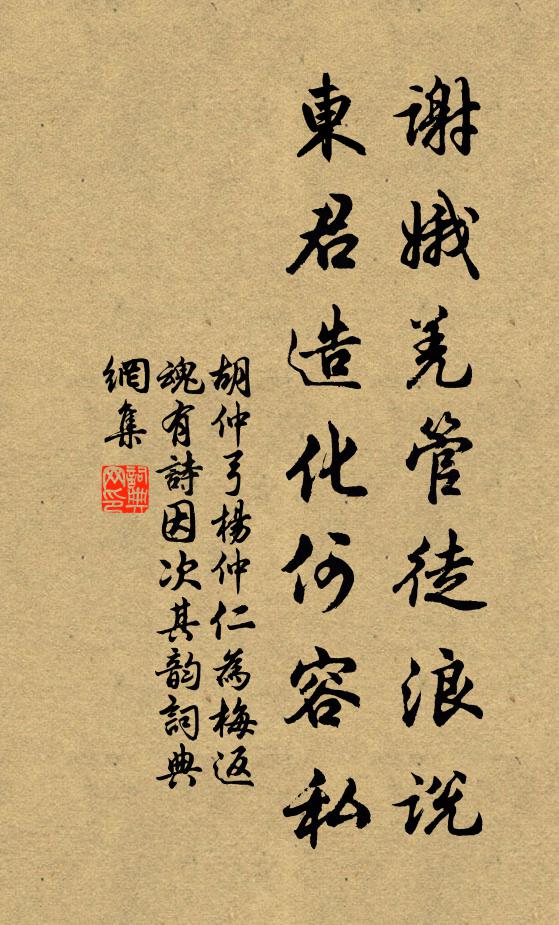 謝娥羌管徒浪說
東君造化何容私
胡仲弓楊仲仁為梅返
魂有詩因次其韵詞典
網集
詞典
网印